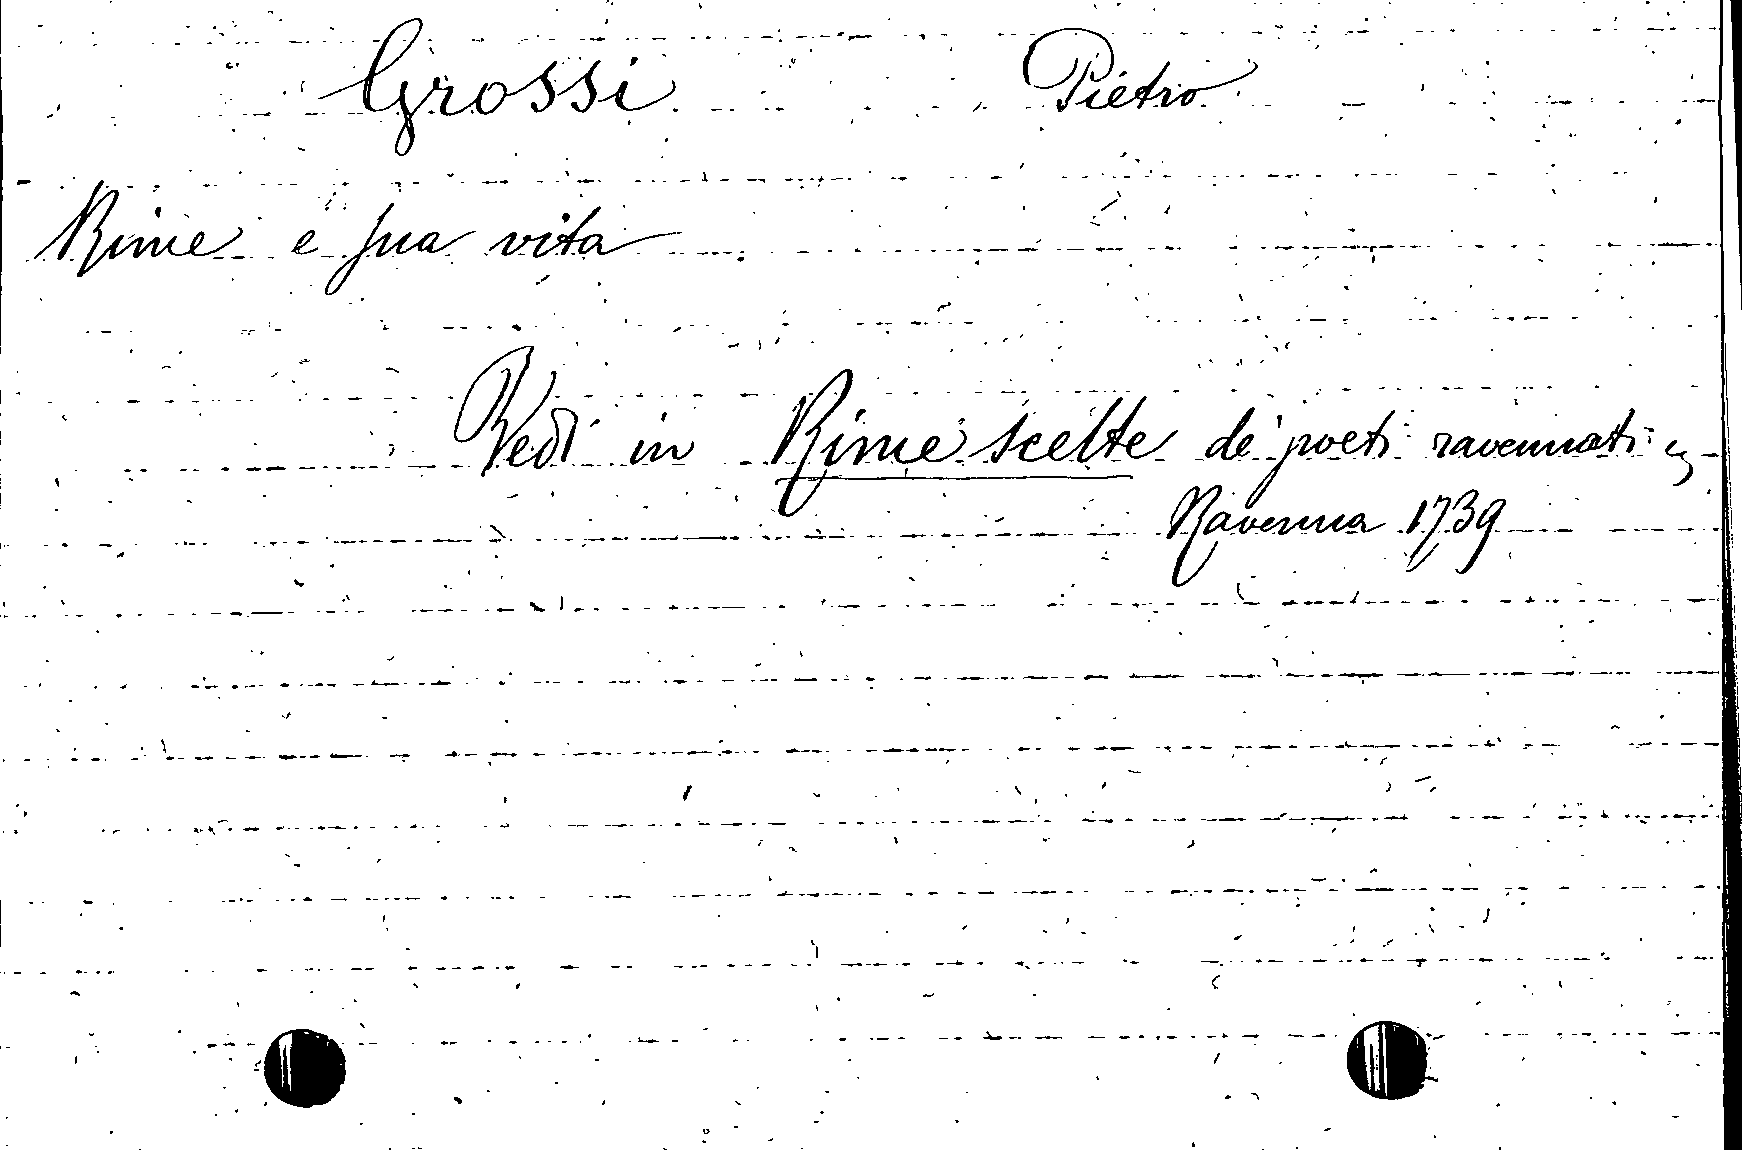 Grossi Pietro
Rime e sua vita
Vedi in Rime scelte de' poeti ravennati
Ravenna 1739